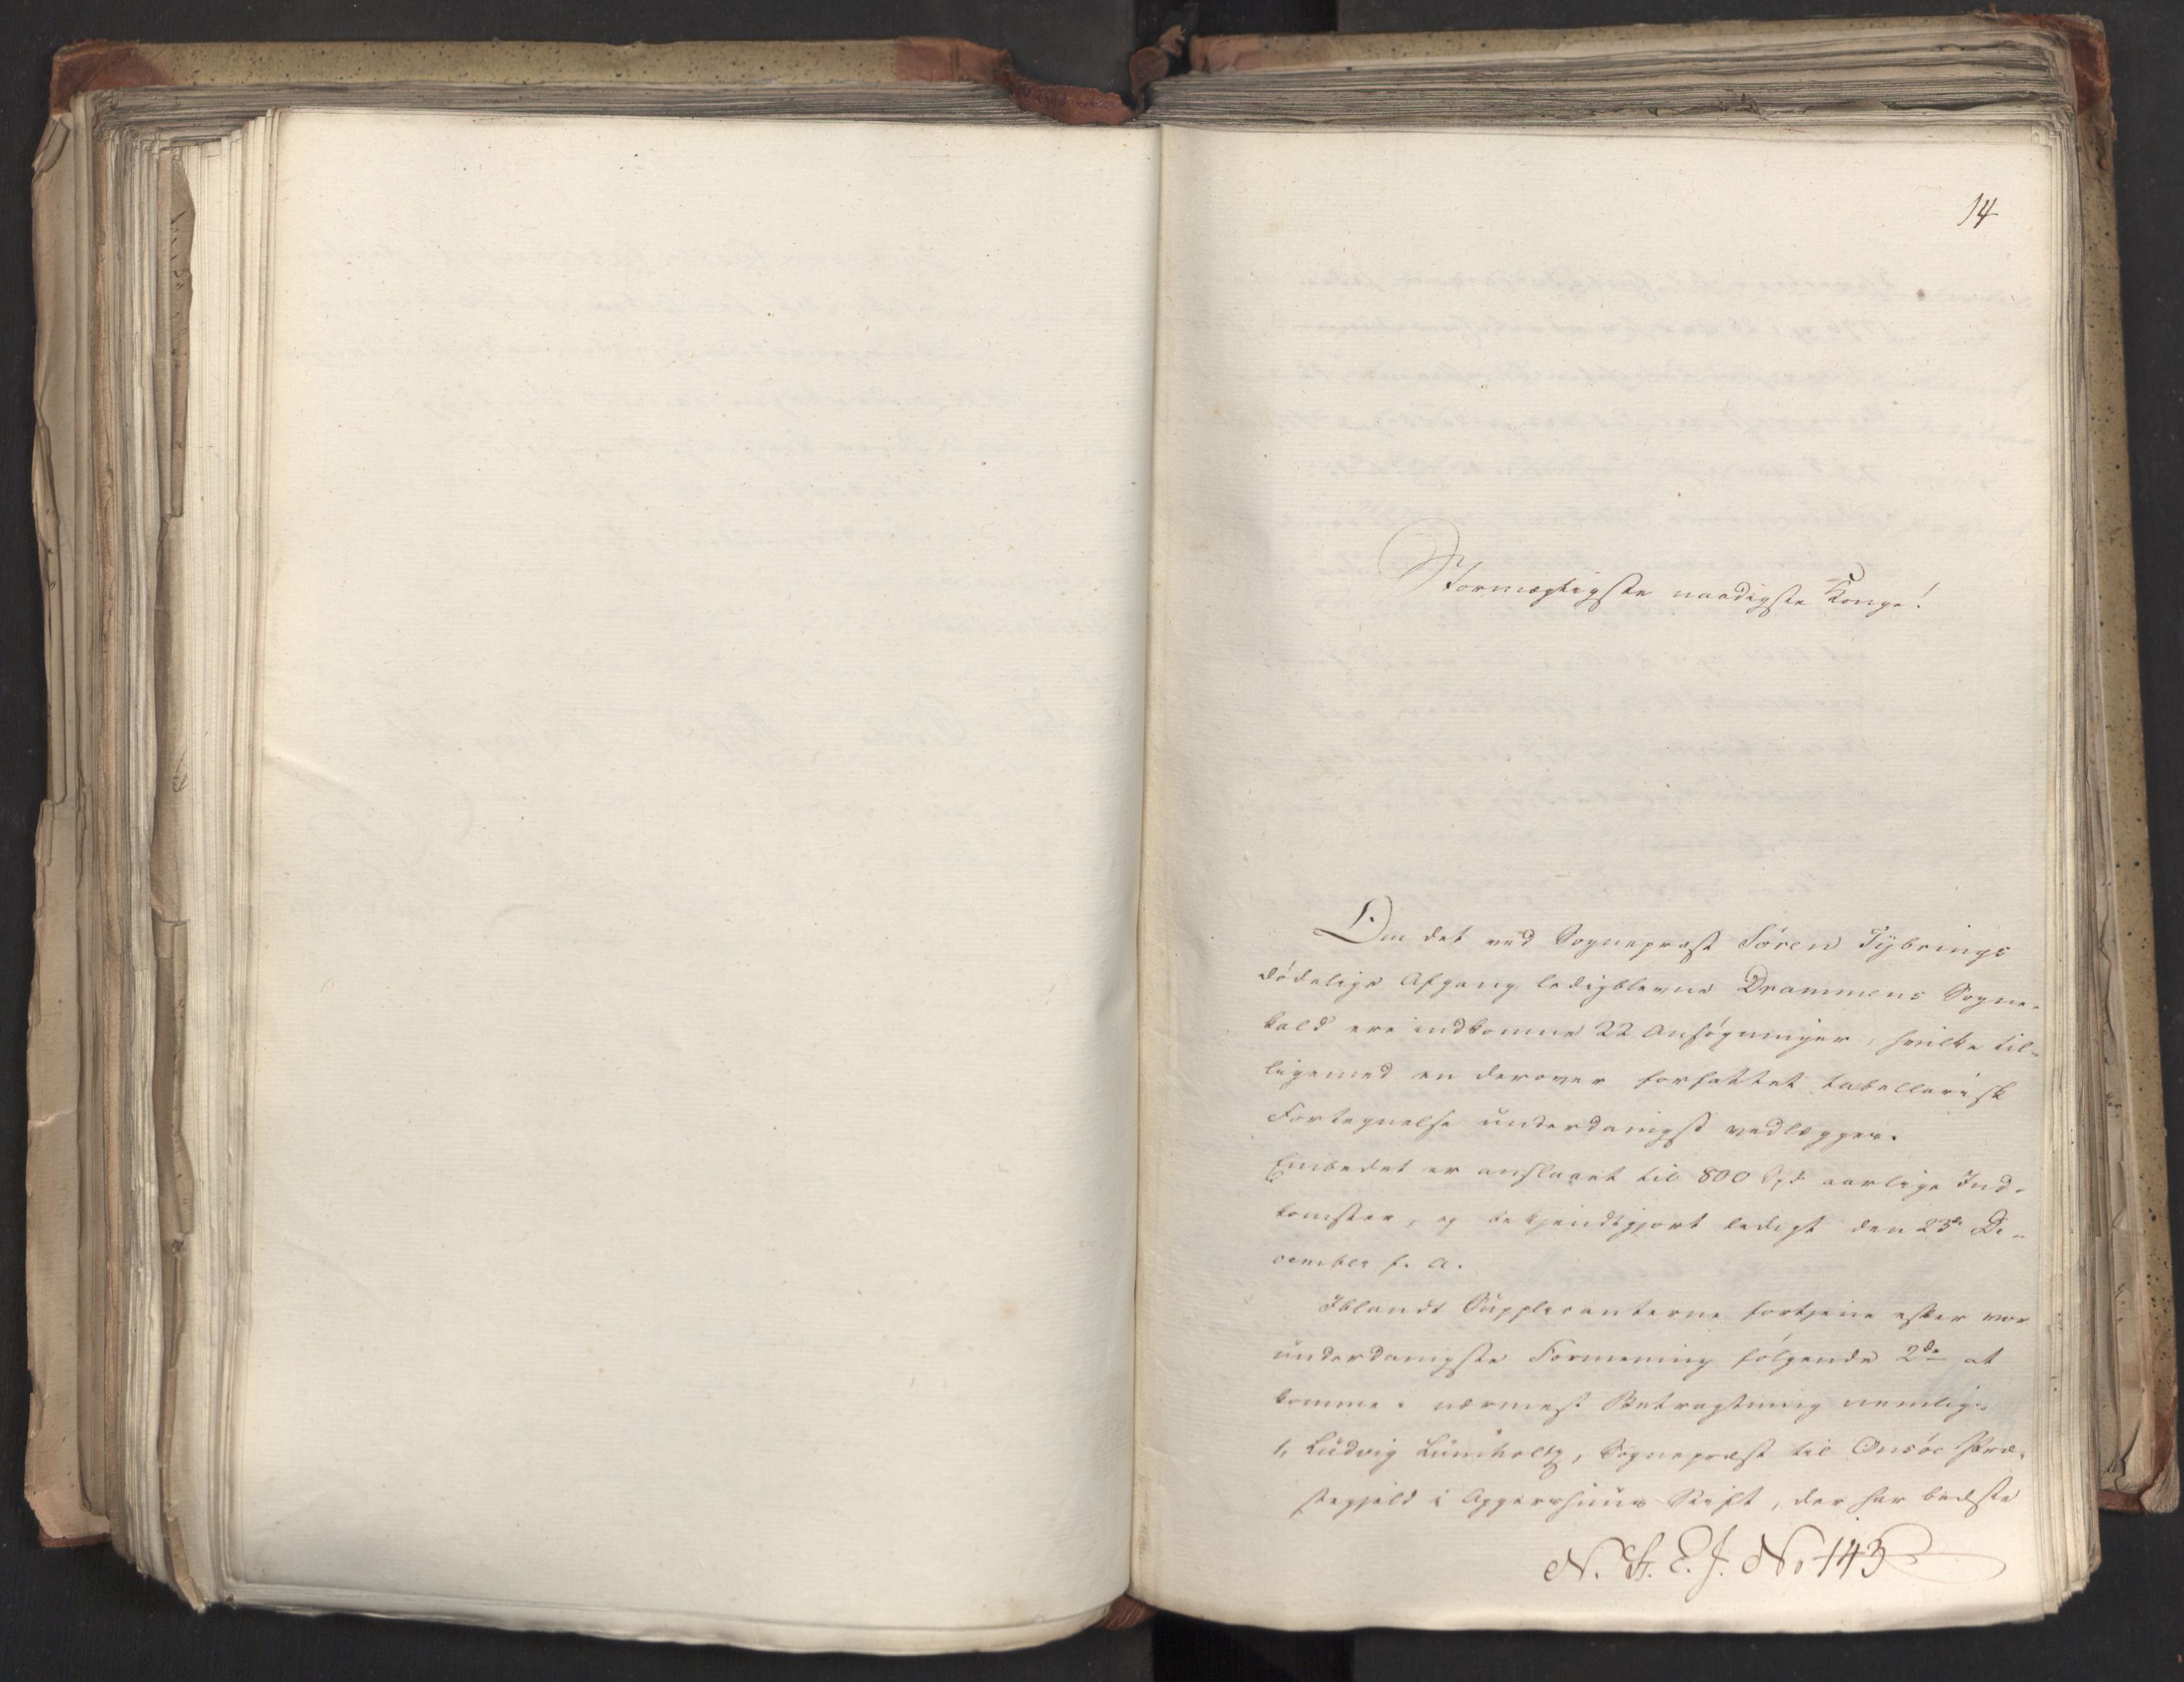 14
Stormægtigste naadigste Konge!
Om det ved Sogneprest Søren Tybrings
dødelige Afgang ledigblevne Drammens Sogne-
kald ere indkomne 22 Ansøgninger, hvilke til-
ligemed en derover forfattet tabellarisk
Fortegnelse underdanigst vedlægges.
Embedet er anslaaet til 800 Spd aarlige Ind-
komster, og bekjendtgjort ledigt den 23de De-
cember f. A.
Iblandt Supplicanterne fortjene efter vor
underdanigste Formening følgende 2de at
komme i nærmest Betragtning nemlig:
1, Ludvig Lumholtz, Sognepræst til Onsøe Præ-
stegjeld i Aggershuus Stift, der har bedste
N. St. E. J. No 143